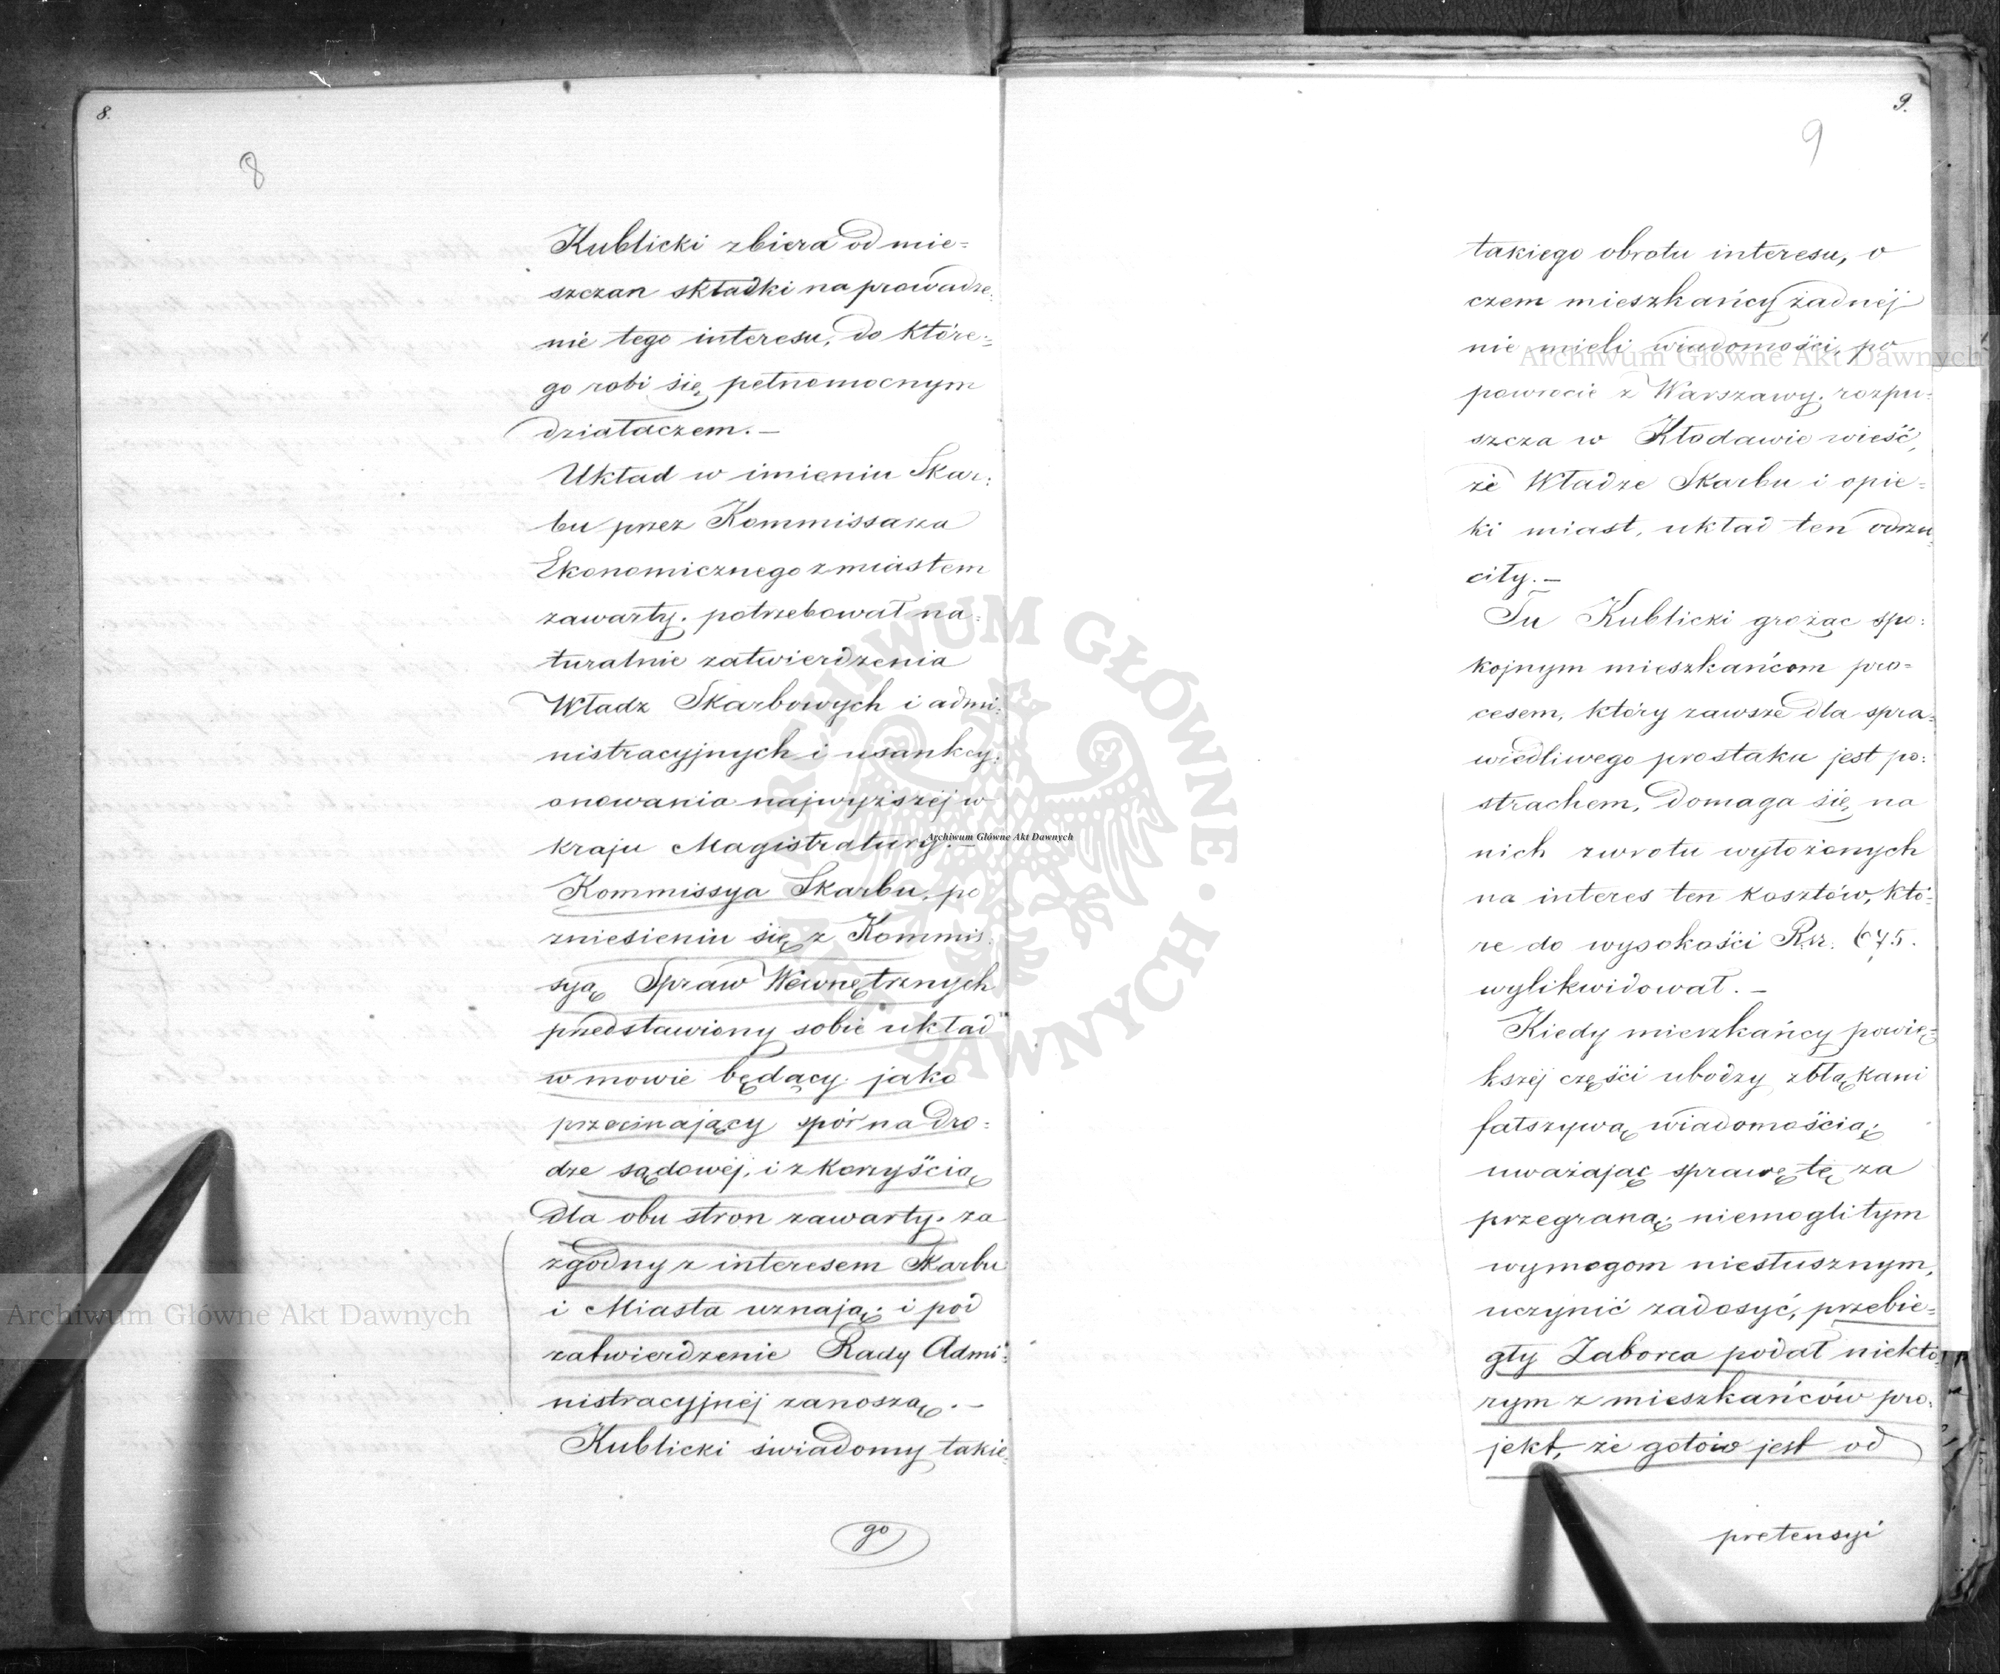 8.
8
Kublicki zbiera od mie=
szczan składki na prowadze=
nie tego interesu, do które=
go robi się pełnomocnym
działaczem. —
Układ w imieniu Skar=
bu przez Kommissarza
Ekonomicznego z miastem
zawarty, potrzebował na=
turalnie zatwierdzenia
Władz Skarbowych i admi=
nistracyjnych i usankcy=
onowania najwyższéj w
kraju Magistratury. —
Kommissya Skarbu, po
zniesieniu się z Kommis
syą Spraw Wewnętrznych
przedstawiony sobie układ
w mowie będący, jako
przecinający spór na dro=
dze sądowéj, i z korzyścią
dla obu stron zawarty, za
zgodny z interesem Skarbu
i Miasta uznają, i pod
zatwierdzenie Rady Admi=
nistracyjnéj zanoszą. —
Kublicki świadomy takie=
go
9.
9
takiego obrotu interesu, o
czem mieszkańcy żadnéj
nie mieli wiadomości, po
powrocie z Warszawy, rozpu=
szcza w Kłodawie wieść,
że Władze Skarbu i opie=
ki miast, układ ten odrzu=
ciły. —
Tu Kublicki grożąc spo=
kojnym mieszkańcom pro=
cesem, który zawsze dla spra=
wiedliwego prostaku jest po=
strachem, domaga się na
nich zwrotu wyłożonych
na interes ten kosztów, któ=
re do wysokości Rsr. 675.
wylikwidował. —
Kiedy mieszkańcy powię=
kszéj części ubodzy zbłąkani
fałszywą wiadomością,
uważając sprawę tę za
przegraną, niemogli tym
wymogom niesłusznym,
uczynić zadosyć, przebie=
gły Zaborca podał niektó=
rym z mieszkańców pro=
jekt, że gotów jest od
pretensyi
Archiwum Główne Akt Dawnych
Archiwum Główne Akt Dawnych
Archiwum Główne Akt Dawnych
ARCHIWUM GŁÓWNE AKT DAWNYCH